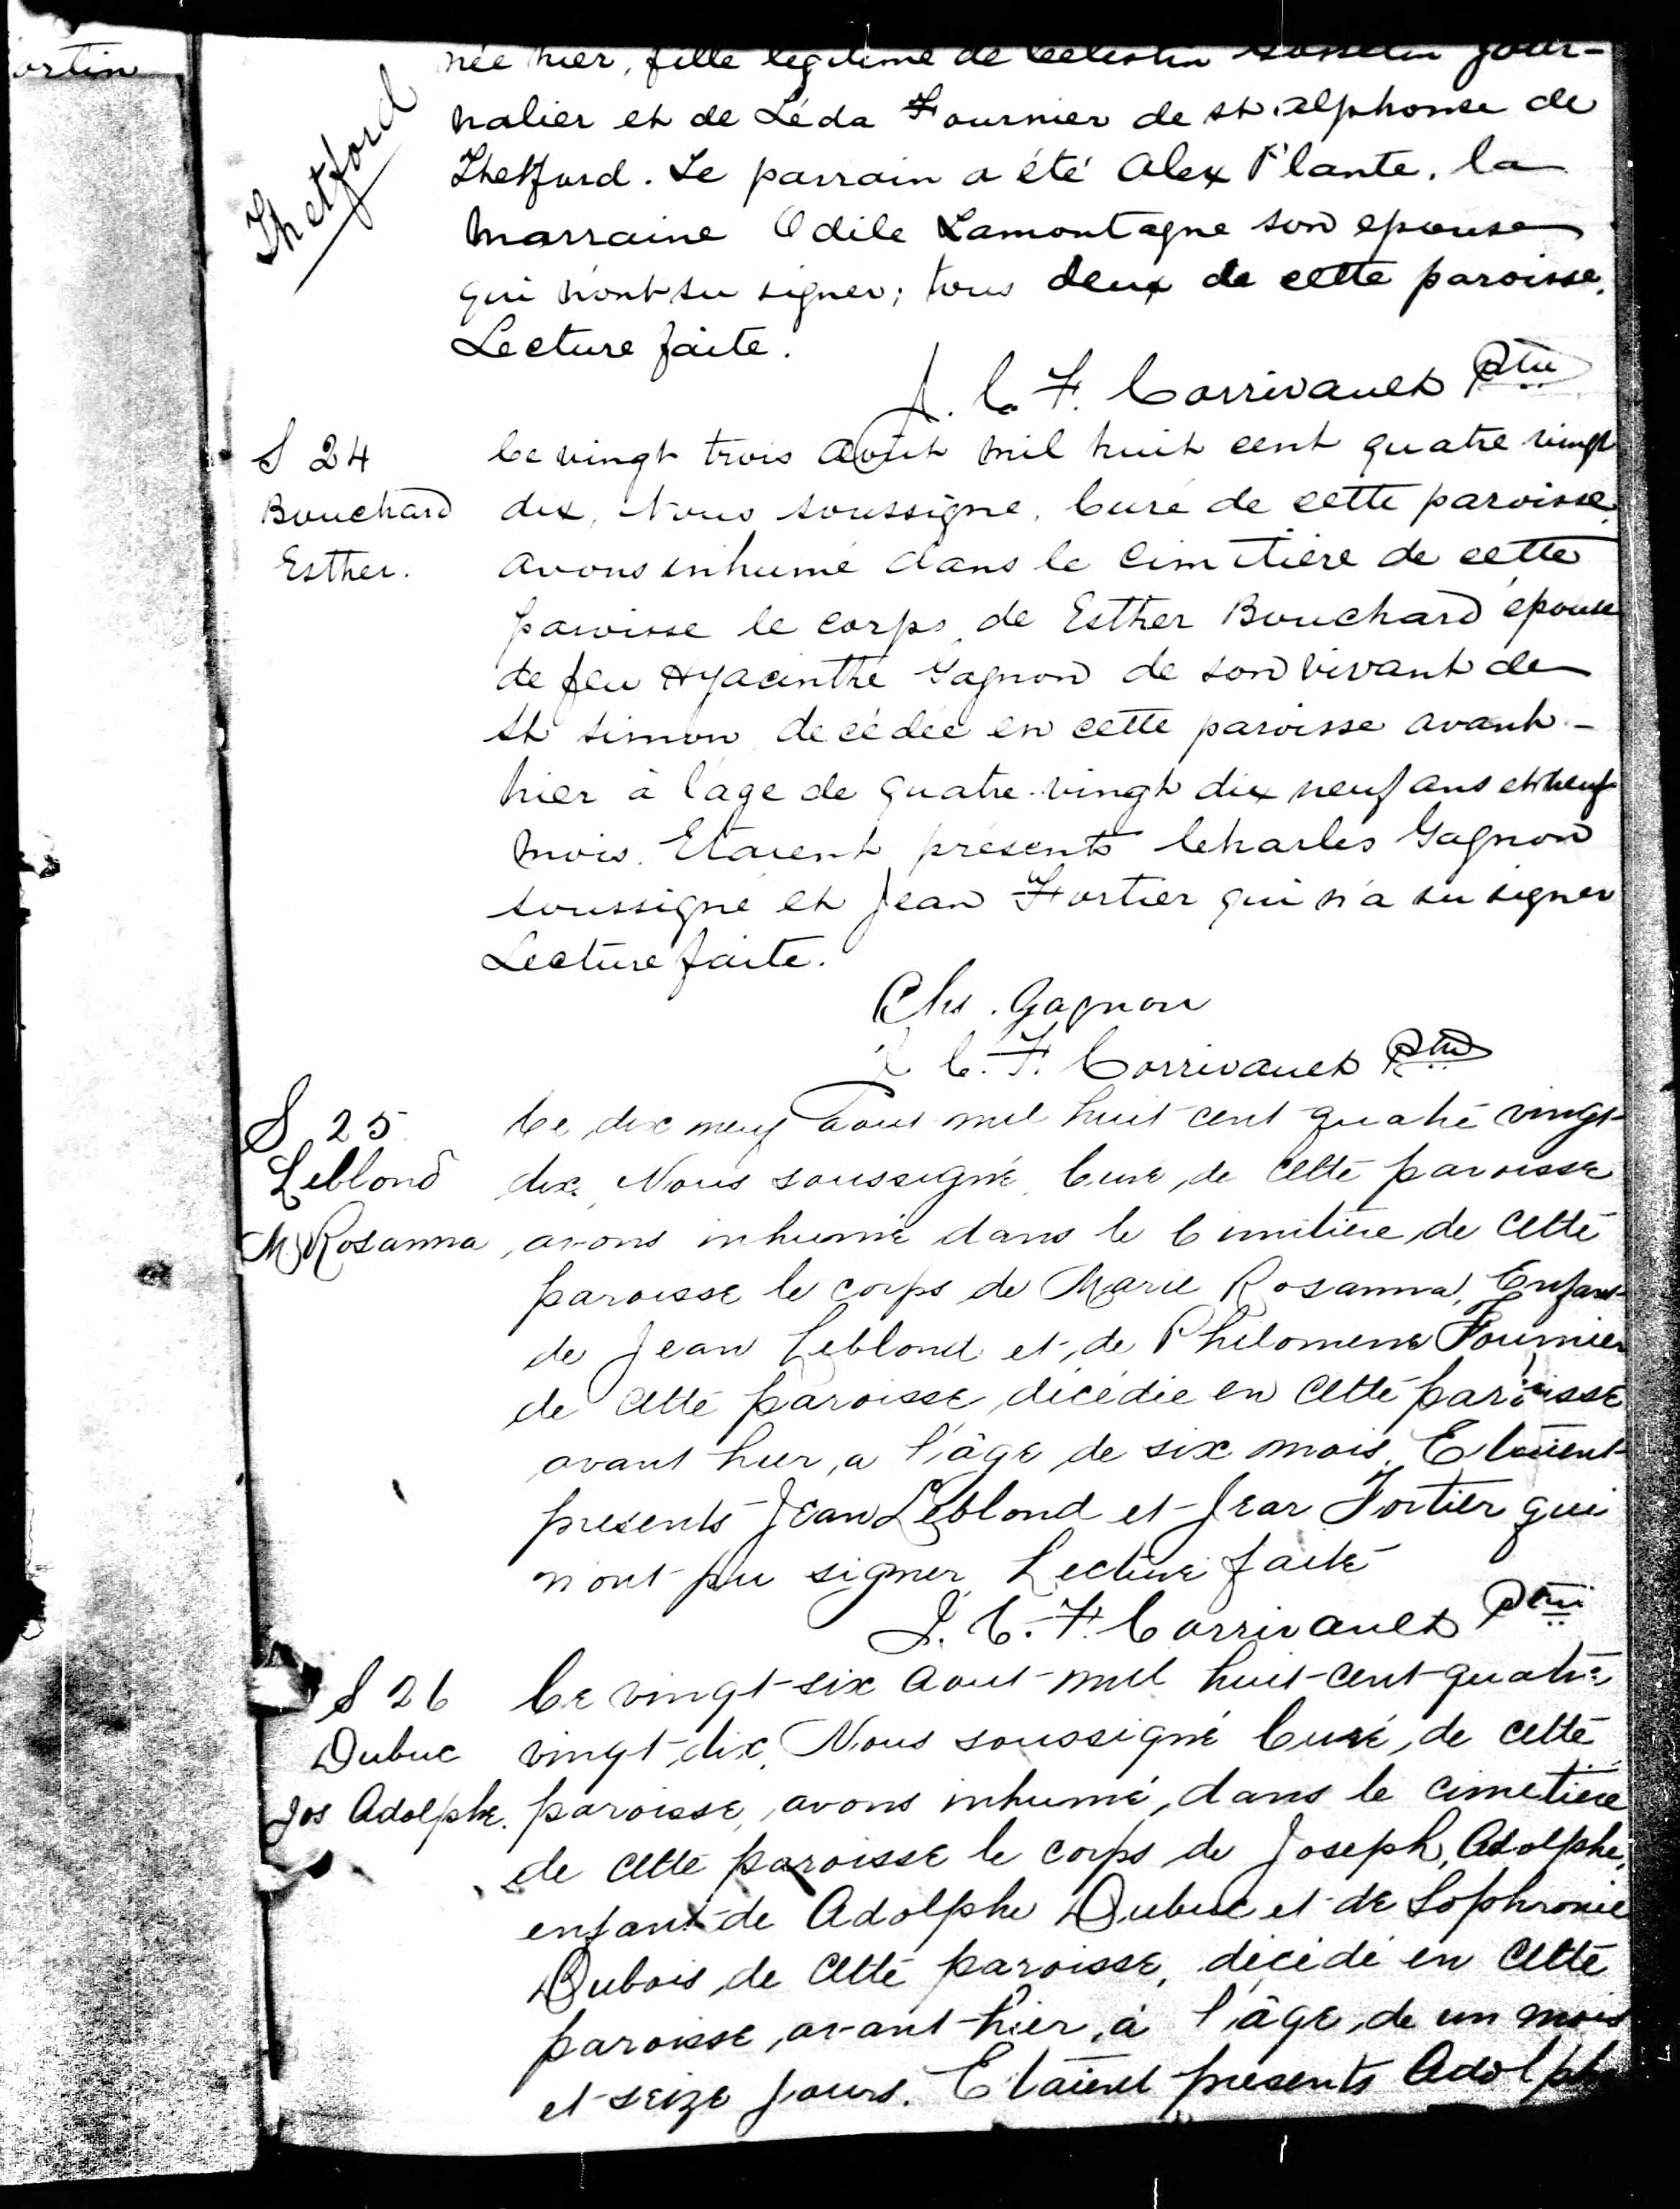 ortin
née hier, fille légitime de Célestin Gosselin jour-
nalier et de Léda Fournier de st. alphonse de
Thetford
Thetford. Le parrain a été Alex Plante, la
marraine Odile Lamontagne son epouse
qui n'ont su signer; tous deux de cette paroisse.
Lecture faite.
J. C. F. Corrivault Ptre
S 24
Bouchard
Esther.
Ce vingt trois Aout mil huit cent quatre vingt
dix, Nous soussigné, Curé de cette paroisse,
avons inhumé dans le Cimetière de cette
paroisse le corps de Esther Bouchard épouse
de feu Hyacinthe Gagnon de son vivant de
St simon décédée en cette paroisse avant-
hier à l'age de quatre-vingt dix neuf ans et neuf
mois. Etaient présents Charles Gagnon
soussigné et Jean Fortier qui n'a su signer
Lecture faite.
Chs. Gagnon
J C. F. Corrivault Ptre
S 25
Leblond
M Rosanna
Ce dix neuf aout mil huit cent quatre vingt-
dix, Nous soussigné Curé, de cette paroisse
avons inhumé dans le Cimitière de cette
paroisse le corps de Marie Rosanna, Enfant
de Jean Leblond et de Philomene Fournier
de cette paroisse, décédée en cette paroisse
avant hier, a l'âge de six mois, Etaient
presents Jean Leblond et Jean Fortier qui
n'ont pu signer Lecture faite
J. C. F. Corrivault Ptre
S 26
Dubuc
Jos Adolphe.
Ce vingt-six aout mil huit-cent-quatre
vingt-dix, Nous soussigné Curé, de cette
paroisse, avons inhumé, dans le cimetière
de cette paroisse le corps de Joseph, Adolphe,
enfant de Adolphe Dubuc et de Sophronie
Dubois de cette paroisse, décédé en cette
paroisse, avant-hier, à l'âge, de un mois
et seize jours. Etaient presents Adolphe